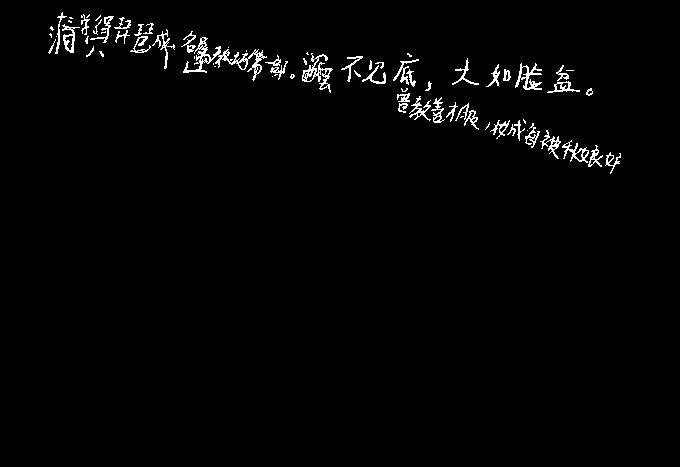 学得琵琶成，名属教坊第一部。
不见底，大如脸盆。
曾教善才服，妆成每被秋娘妒